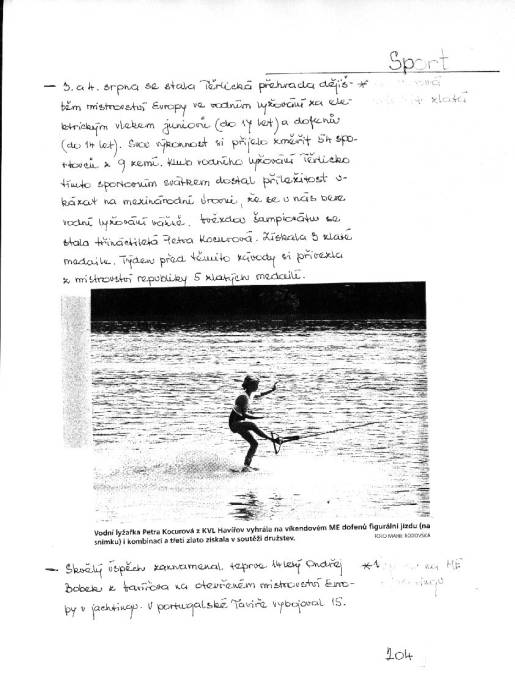 Sport
— 3. a 4. srpna se stala Těrlická přehrada dějiš- *
těm mistrovství Evropy ve vodním lyžování za ele-
ktrickým vlekem juniorů (do 17 let) a dofenů
(do 14 let). Svou výkonnost si přijelo změřit 54 spo-
rtovců z 9 zemí. Klub vodního lyžování Těrlicko
tímto sportovním svátkem dostal příležitost u-
kázat na mezinárodní úrovni, že se u nás bere
vodní lyžování vážně. Hvězdou šampionátu se
stala třináctiletá Petra Kocurová. Získala 3 zlaté
medaile. Týden před těmito závody si přivezla
z mistrovství republiky 5 zlatých medailí.
zlatá
Vodní lyžařka Petra Kocurová z KVL Havířov vyhrála na víkendovém ME dofenů figurální jízdu (na
snímku) i kombinaci a třetí zlato získala v soutěži družstev.
FOTO
— Skvělý úspěch zaznamenal teprve 14 letý Ondřej *1
Bobek z Havířova na otevřeném mistrovství Evro-
py v jachtingu. V portugalské Taviře vybojoval 15.
na ME
204